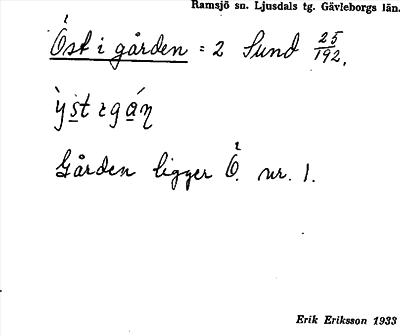 Ramsjö sn. Ljusdals tg. Gävleborgs län.
Öst i gården = 2 Sund 25/192.
Gården ligger Ö. nr. 1.
Erik Eriksson 1933